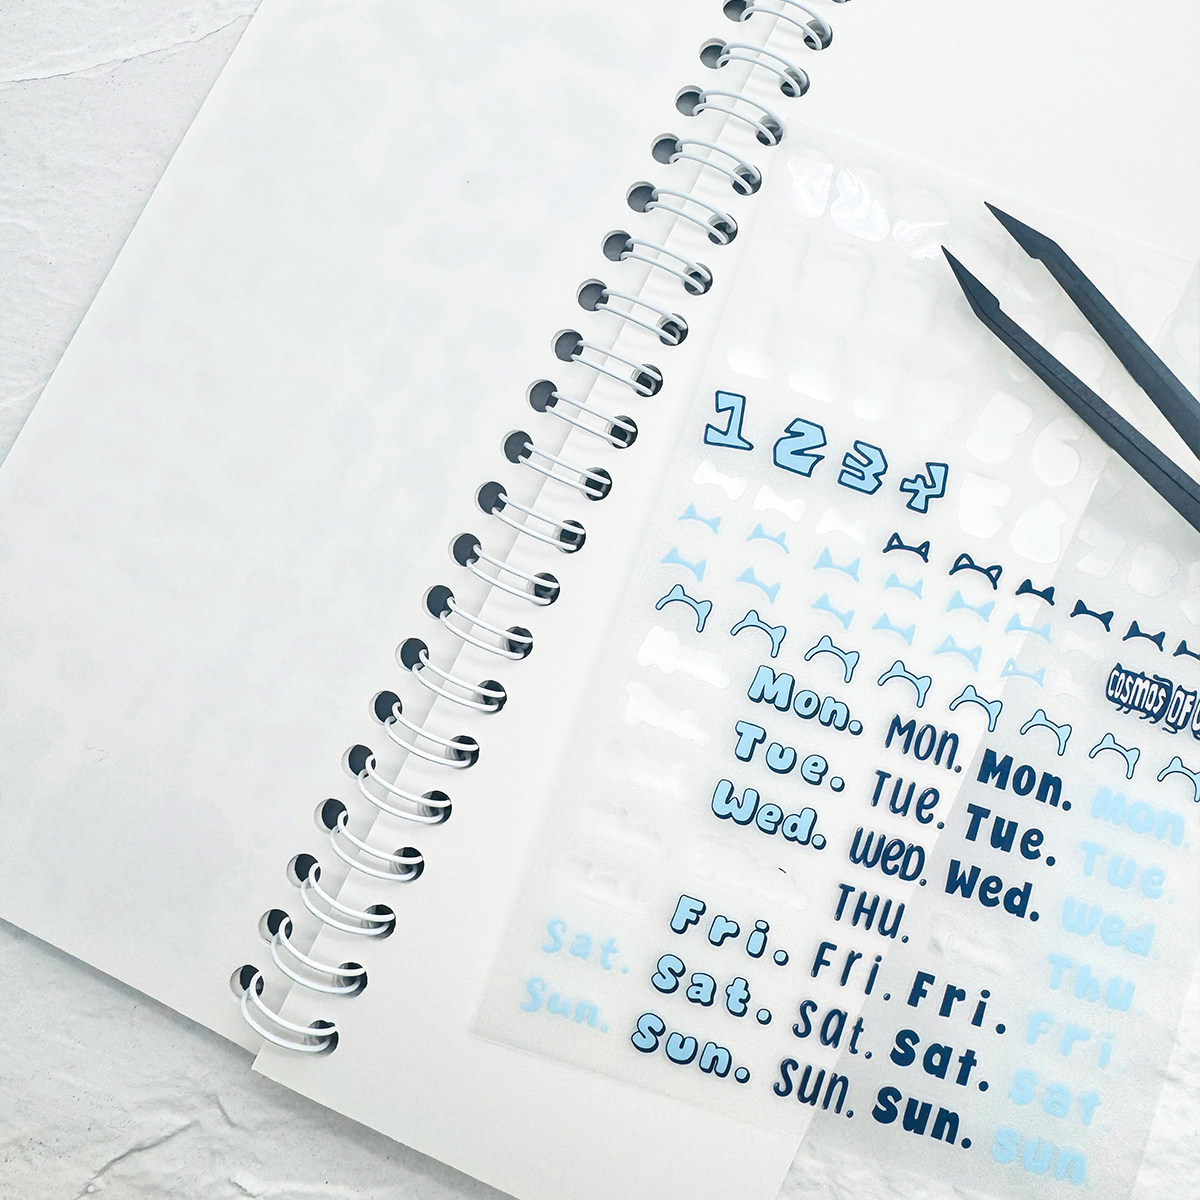 1 2 3 4
COSMOS OF
Mon. MON. Mon. Mon.
Tue. TUE. Tue. Tue
Wed. WED. Wed. Wed
THU. Thu
Fri. Fri. Fri. Fri
Sat. Sat. sat. Sat. Sat
Sun. Sun. sun. Sun. Sun